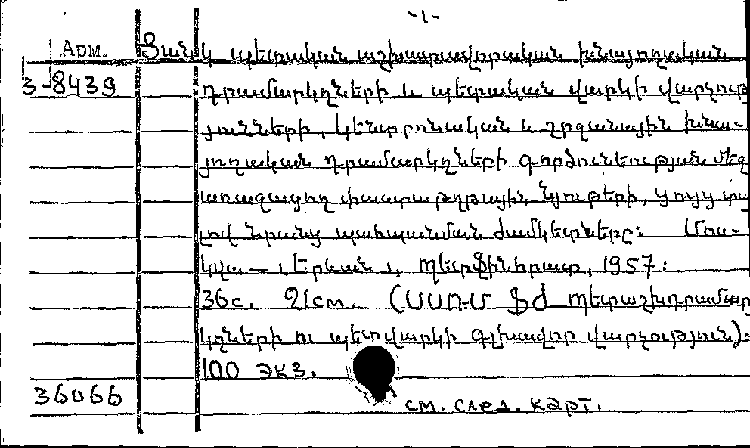 -1-
Арм. Ցանկ պետական աշխատավորական խնայողական
3-8439 դրամարկղների և պետական վարկի վարչութ
յունների, կենտրոնական և շրջանային խնա-
յողական դրամարկղների գործունեության մեջ
առաջացող փաստաթղթային նյութերի, ցույց տա
լով նրանց պահպանման ժամկետները: Մոս-
կվա — Երևան, Պետֆինհրատ, 1957:
36с. 21см. (ՍՍՌՄ ՖՄ պետաշխդրամար
կղների ու պետվարկի գլխավոր վարչություն):
100 экз.
36066 см. след. карт.